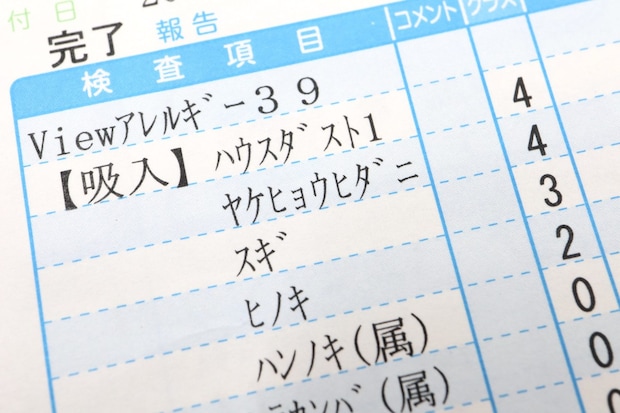 付日 20
完了 報告
検査項目 コメント クラス
Viewアレルギー39
【吸入】 ハウスダスト1 4
ヤケヒョウヒダニ 4
スギ 3
ヒノキ 2
ハンノキ(属) 0
ラカンバ(属) 0
0